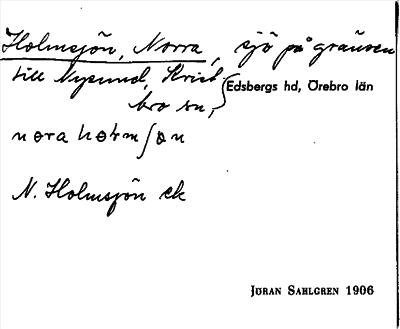 Holmsjön, Norra, sjö på gränsen
till Nysund, Krist
bro sn, Edsbergs hd, Örebro län
nora holmʃøn
N. Holmsjön ek
JÖRAN SAHLGREN 1906